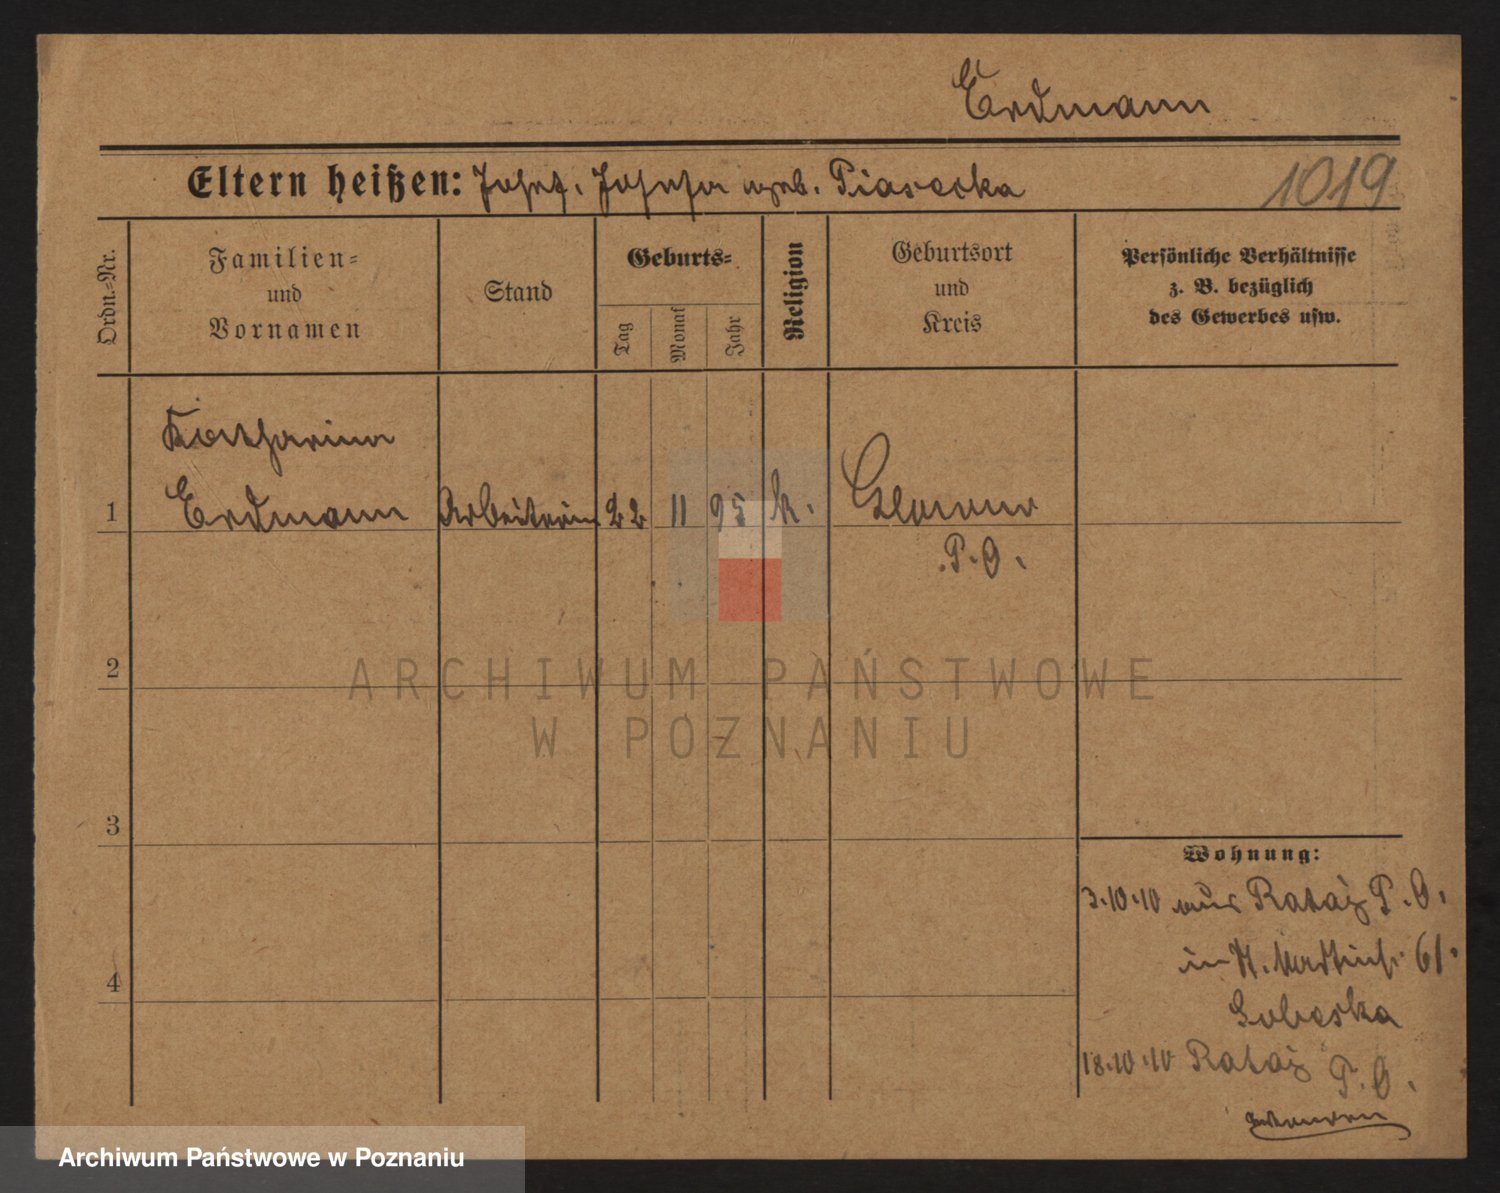 Erdmann
Eltern heißen: Josef. Josefa geb. Piasecka
1019
Ordn.-Nr.
Familien-
und
Vornamen
Stand
Geburts-
Tag
Monat
Jahr
Religion
Geburtsort
und
Kreis
Persönliche Verhältnisse
z. B. bezüglich
des Gewerbes usw.
Katharina
1 Erdmann Arbeiterin 22 11 95 k.
P. O.
2
ARCHIWUM PAŃSTWOWE
W POZNANIU
3
Wohnung:
3.10.10 aus Rataj P. O.
in St. Martinst. 61.
4
18.10.10 Rataj P. O.
Archiwum Państwowe w Poznaniu